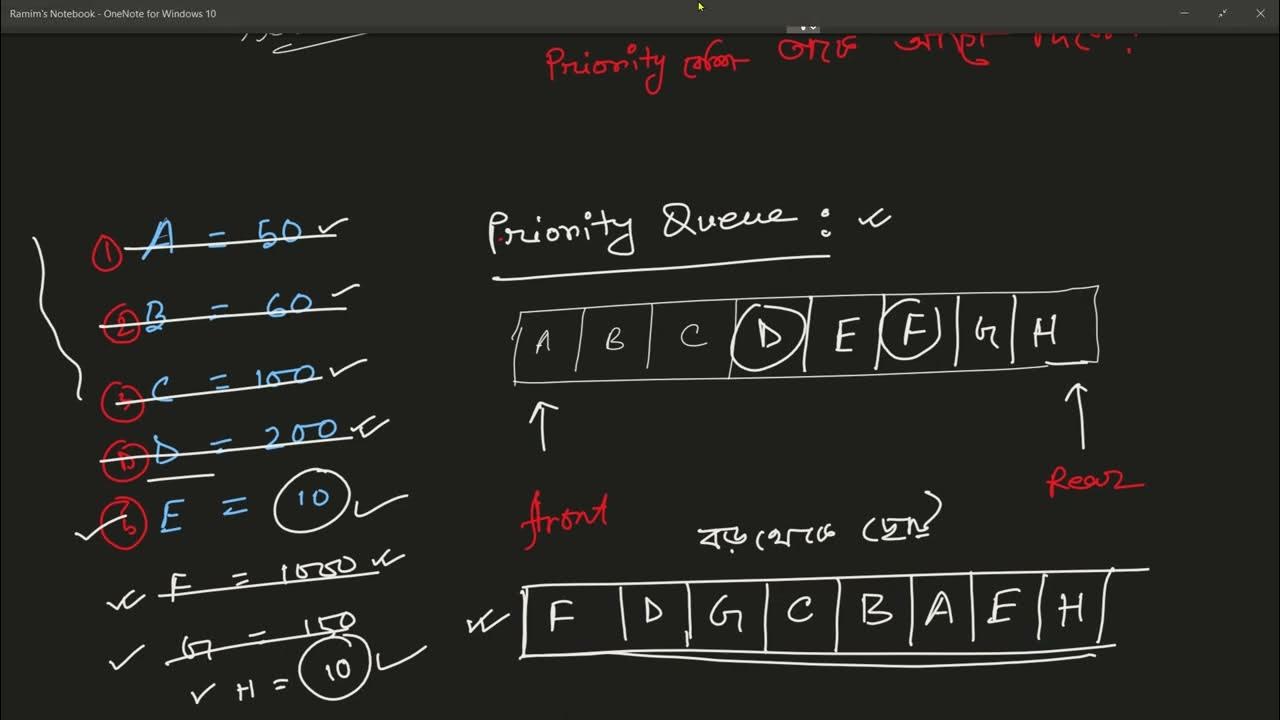 Ramim's Notebook - OneNote for Windows 10
Priority
Priority Queue :
① A = 50
② B = 60
C = 100
D = 200
E = 10
F = 1000
G = 150
H = 10
A B C D E F G H
front
Rear
বড় থেকে ছোট
F D G C B A E H